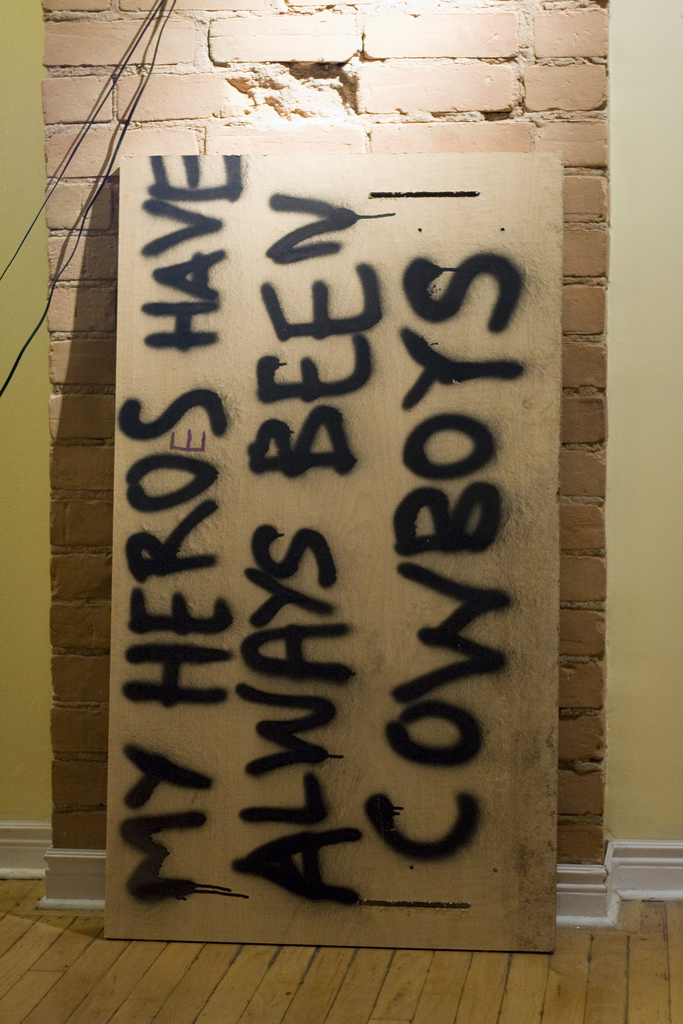 MY HEROES HAVE
ALWAYS BEEN
COWBOYS